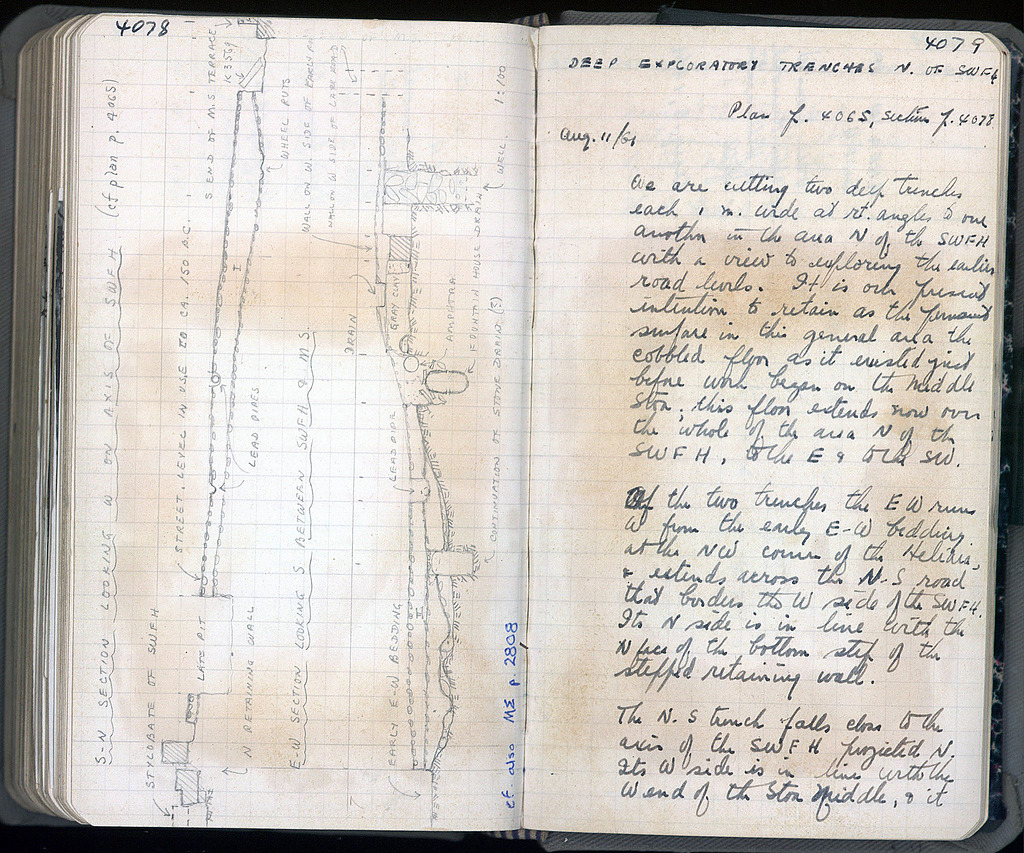 4078
(cf plan p. 4065)
S-N SECTION LOOKING W ON AXIS OF SWFH
STYLOBATE OF SWFH
STREET LEVEL IN USE TO CA. 150 B.C.
S END OF M.S TERRACE
K 3569
LATE PIT
N RETAINING WALL
LEAD PIPES
I
WHEEL RUTS
E-W SECTION LOOKING S BETWEEN SWFH & M.S.
WALL ON W SIDE OF EARLY
WALL ON W SIDE OF LATE ROAD
DRAIN
EARLY E-W BEDDING
II
LEAD PIPE
GRAY CLAY
AMPHORA
FOUNTAIN HOUSE DRAIN
CONTINUATION OF STONE DRAIN (?)
WELL
1:100
cf. also ΜΣ p 2808
4079
DEEP EXPLORATORY TRENCHES N. OF SWFH
Plan p. 4065, section p. 4078
Aug. 11/61
We are cutting two deep trenches
each 1 m. wide at rt. angles to one
another in the area N of the SWFH
with a view to exploring the earlier
road levels. It is our present
intention to retain as the permanent
surface in this general area the
cobbled floor as it existed just
before work began on the Middle
Stoa; this floor extends now over
the whole of the area N of the
SWFH, to the E & to the SW.
Of the two trenches the E W runs
W from the early E-W bedding
at the NW corner of the Heliaia,
& extends across the N-S road
that borders the W side of the SWFH.
Its N side is in line with the
N face of the bottom step of the
stepped retaining wall.
The N.S trench falls close to the
axis of the SWFH projected N.
Its W side is in line with the
W end of the Stoa Middle, & it